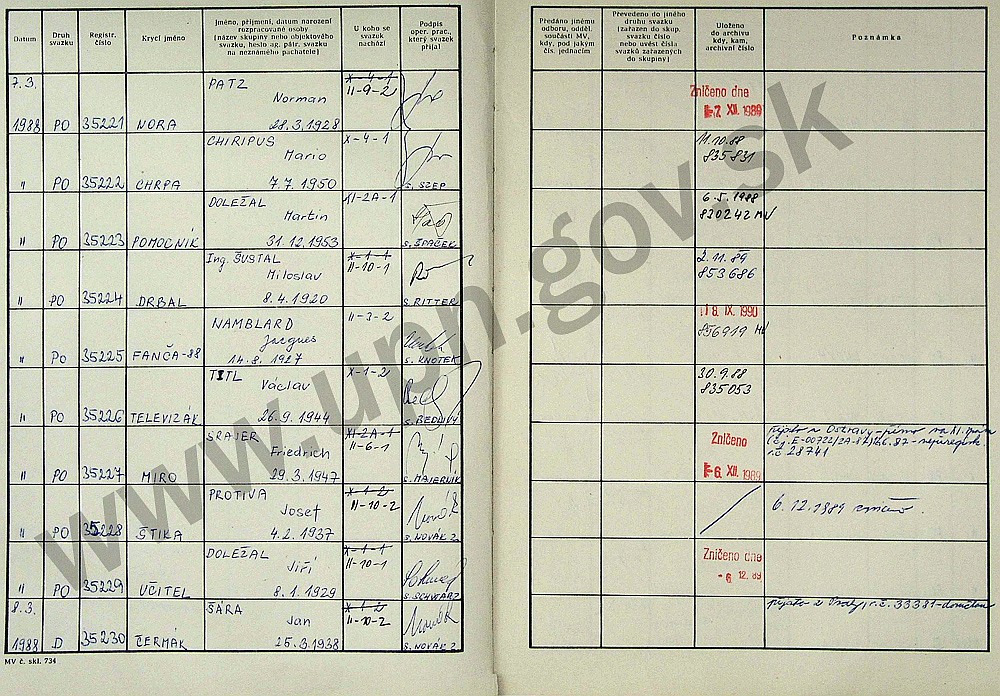 Datum
Druh svazku
Registr. číslo
Krycí jméno
Jméno, příjmení, datum narození
rozpracované osoby
(název skupiny nebo objektového
svazku, heslo ag. pátr. svazku
na neznámého pachatele)
U koho se
svazek
nachází
Podpis
oper. prac.,
který svazek
přijal
Předáno jinému
odboru, odděl.
součásti MV,
kdy, pod jakým
čís. jednacím
Převedeno do jiného
druhu svazku
(zařazen do skup.
svazku číslo
nebo uvést čísla
svazků zařazených
do skupiny)
Uloženo
do archivu
kdy, kam,
archivní číslo
Poznámka
7.3.
PATZ
X-4-1
II-9-2
Norman
Zničeno dne
7. XII. 1989
1988 PO 35221 NORA 28.3.1928
CHIRIPUS X-4-1
Mario
11.10.88
835831
" PO 35222 CHRPA 7.7.1950 S. SZEP
DOLEŽAL XI-2A-1
Martin
6.5.1988
820242 MV
" PO 35223 POMOCNÍK 31.12.1953 S. ŠPAČEK
Ing. ŠUSTAL X-1-1
II-10-1
Miloslav
2.11.89
853686
" PO 35224 DRBAL 8.4.1920 S. RITTER
NAMBLARD II-3-2
Jacques
18. IX. 1990
856919 MV
" PO 35225 FANČA-88 14.8.1927 S. KNOTEK
TITL X-1-2
Václav
30.9.88
835053
" PO 35226 TELEVIZÁK 26.9.1944 S. BEDLIVÝ
SRAJER XI-2A-1
II-6-1
Friedrich
Zničeno
6. XII. 1989
r.č. 28741
" PO 35227 MIRO 29.3.1947 S. MAJERNÍK
PROTIVA X-1-2
II-10-2
Josef
6.12.1989 zničeno.
" PO 35228 ŠTIKA 4.2.1937 S. NOVÁK 2.
DOLEŽAL X-1-1
II-10-1
Jiří
Zničeno dne
-6. 12. 89
" PO 35229 UČITEL 8.1.1929 S. SCHWARZ
8.3.
ŠÁRA X-1-2
II-10-2
Jan
r.č. 33381
1988 D 35230 ČERMÁK 25.3.1938 S. NOVÁK 2.
MV č. skl. 734
www.upn.gov.sk